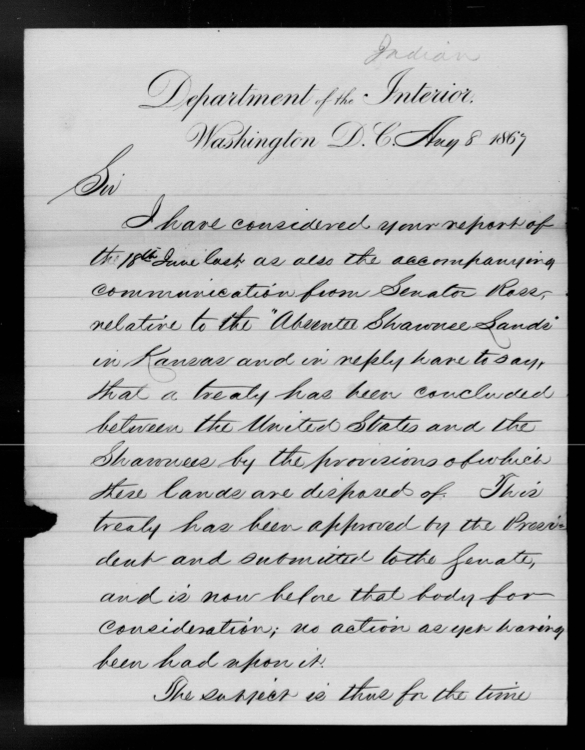 Indian
Department of the Interior.
Washington D.C. Aug 8 1867
Sir
I have considered your report of
the 18th June last, as also the accompanying
communication from Senator Ross,
relative to the "Absentee Shawnee Lands"
in Kansas and in reply have to say,
that a treaty has been concluded
between the United States and the
Shawnees by the provisions of which
these lands are disposed of. This
treaty has been approved by the Presi-
dent and submitted to the Senate,
and is now before that body for
consideration; no action as yet having
been had upon it.
The subject is thus for the time